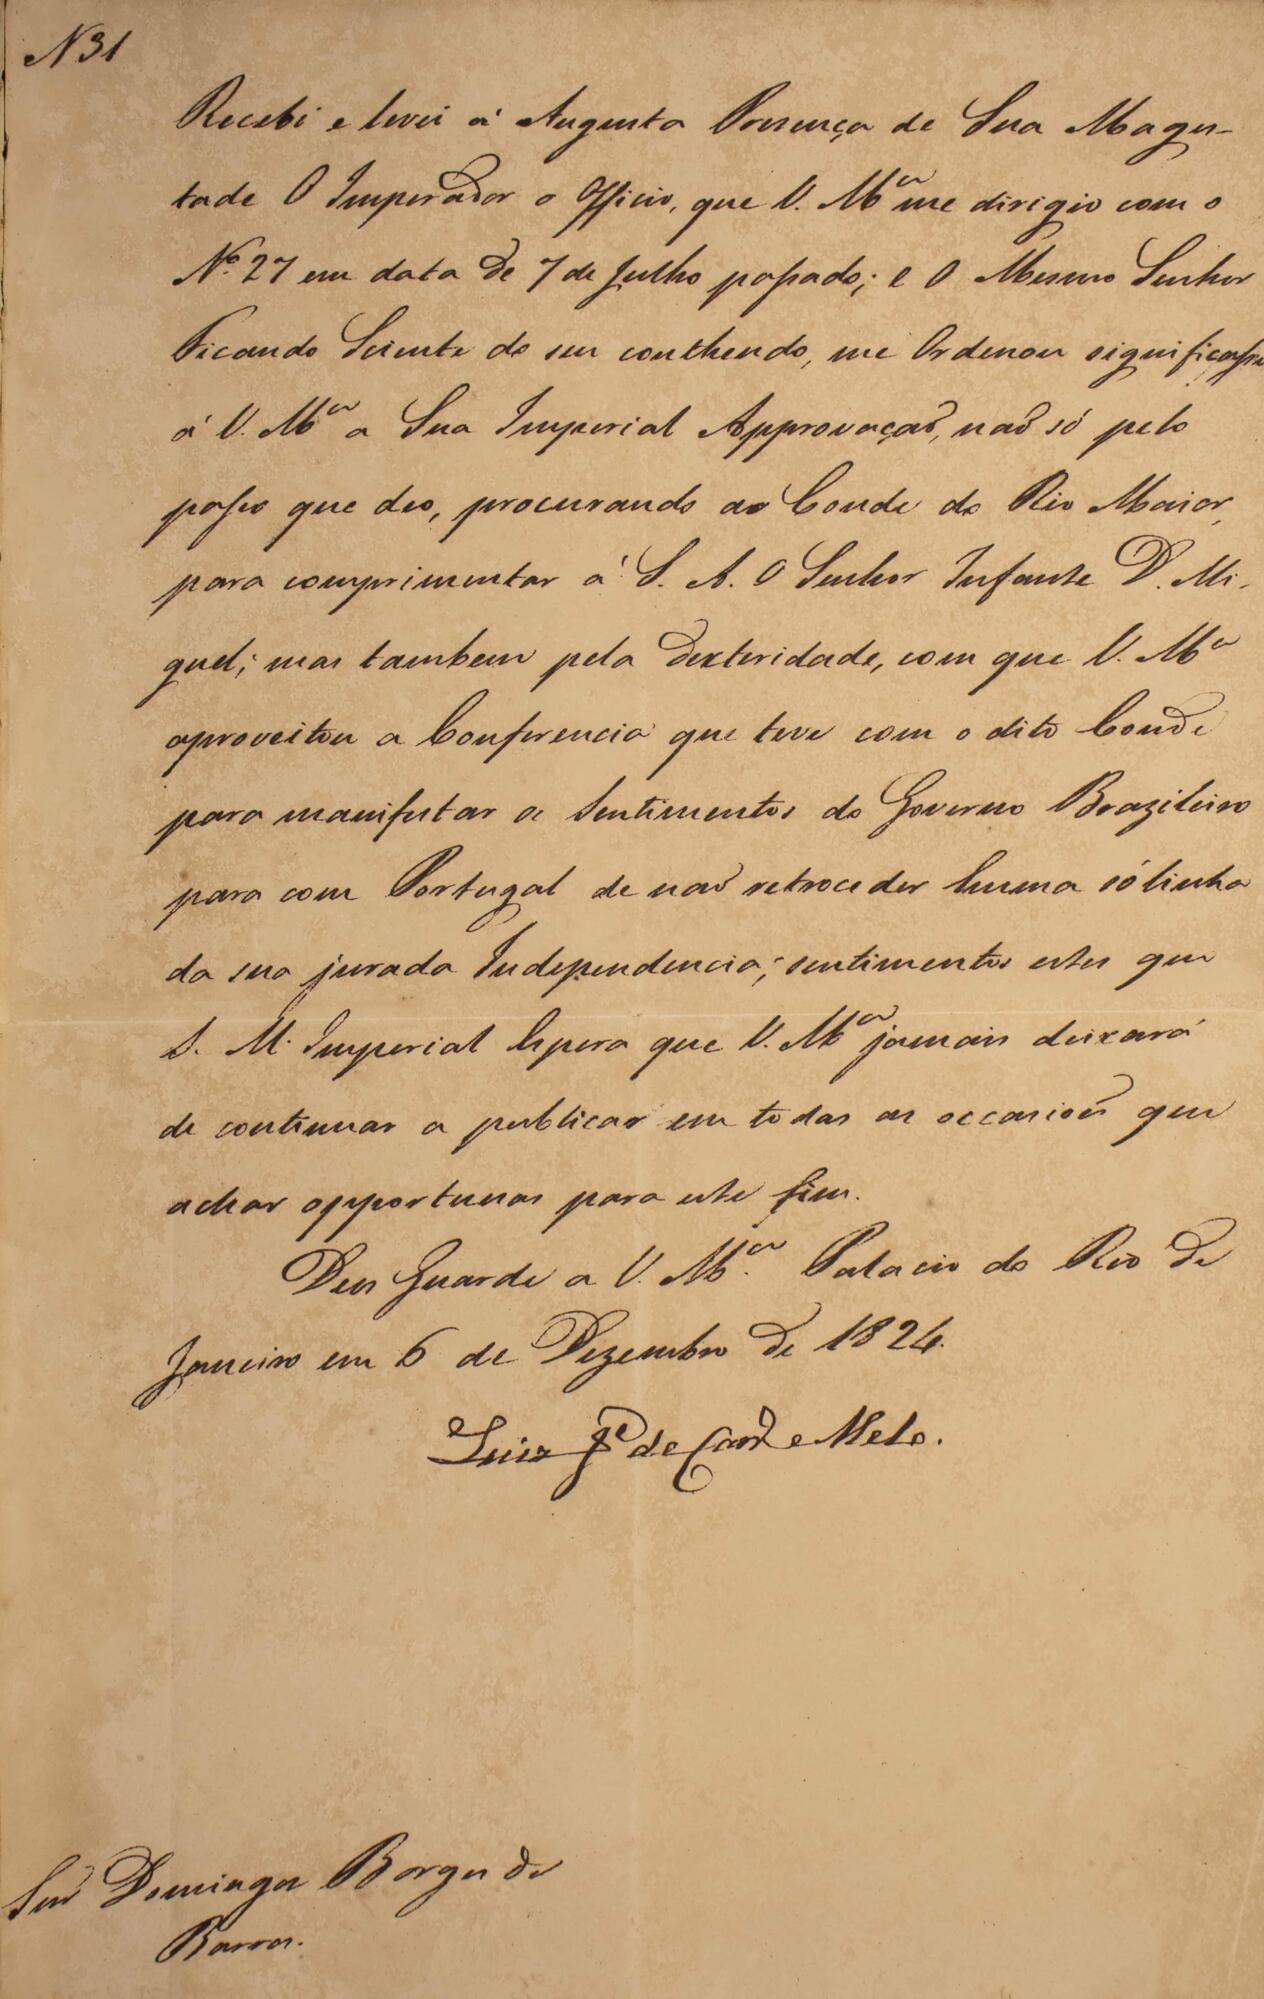 N 31
Recebi e levei á Augusta Presença de Sua Mages-
tade O Imperador o Officio, que V. M.ce me dirigio com o
Nº. 27 em data de 7 de Julho passado; e O Mesmo Senhor
Ficando Sciente do seu contheudo, me Ordenou significasse
á V. M.ce a Sua Imperial Approvação, não só pelo
passo que deo, procurando ao Conde do Rio Maior,
para comprimentar á S. A. O Senhor Infante D. Mi-
guel; mas tambem pela dexteridade, com que V. M.ce
aproveitou a Conferencia que teve com o dito Conde
para manifestar os Sentimentos do Governo Brazileiro
para com Portugal de não retroceder huma só linha
da sua jurada Independencia; sentimentos estes que
S. M. Imperial Espera que V. M.ce jamais deixará
de continuar a publicar em todas as occasioẽs que
achar opportunas para este fim.
Deos Guarde a V. M.ce. Palacio do Rio de
Janeiro em 6 de Dezembro de 1824.
Luiz Je de Carv.o e Melo.
Snr Domingos Borges de
Barros.